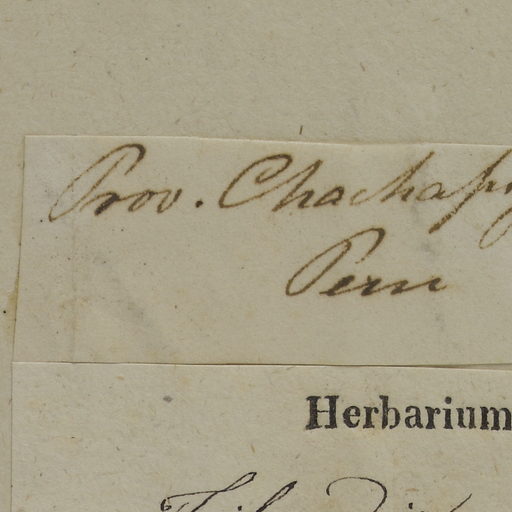 Prov. Chachapo
Peru
Herbarium